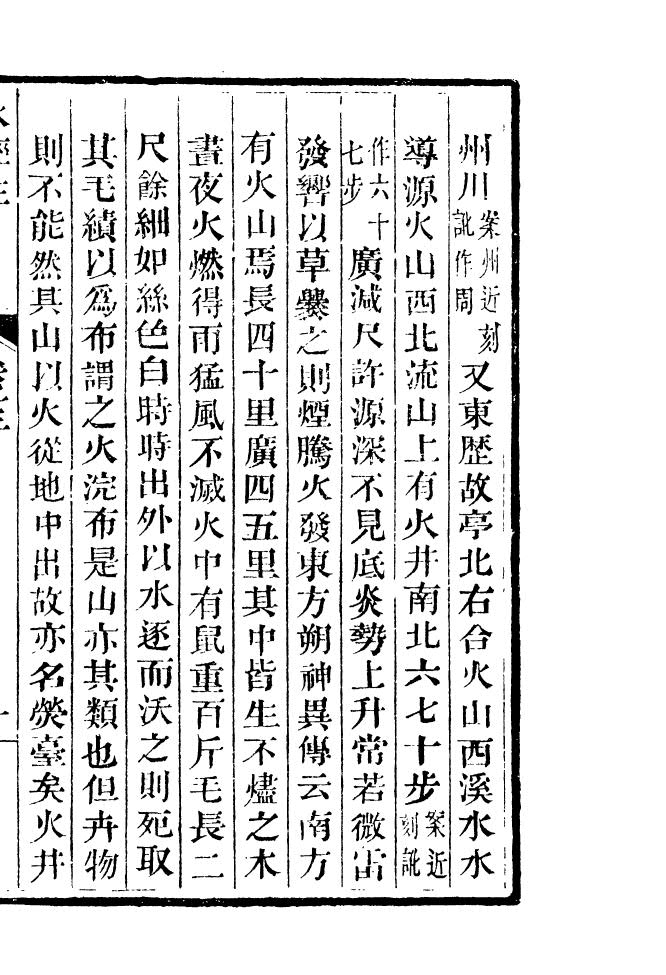 州川案州近刻訛作周又東歴故亭北右合火山西溪水水
導源火山西北流山上有火井南北六七十步案近刻訛
作六十七步廣減尺許源深不見底炎勢上升常若微雷
發響以草爨之則煙騰火發東方朔神異傳云南方
有火山焉長四十里廣四五里其中皆生不燼之木
晝夜火燃得雨猛風不滅火中有鼠重百斤毛長二
尺餘細如絲色白時時出外以水逐而沃之則死取
其毛績以爲布謂之火浣布是山亦其類也但卉物
則不能然其山以火從地中出故亦名熒臺矣火井